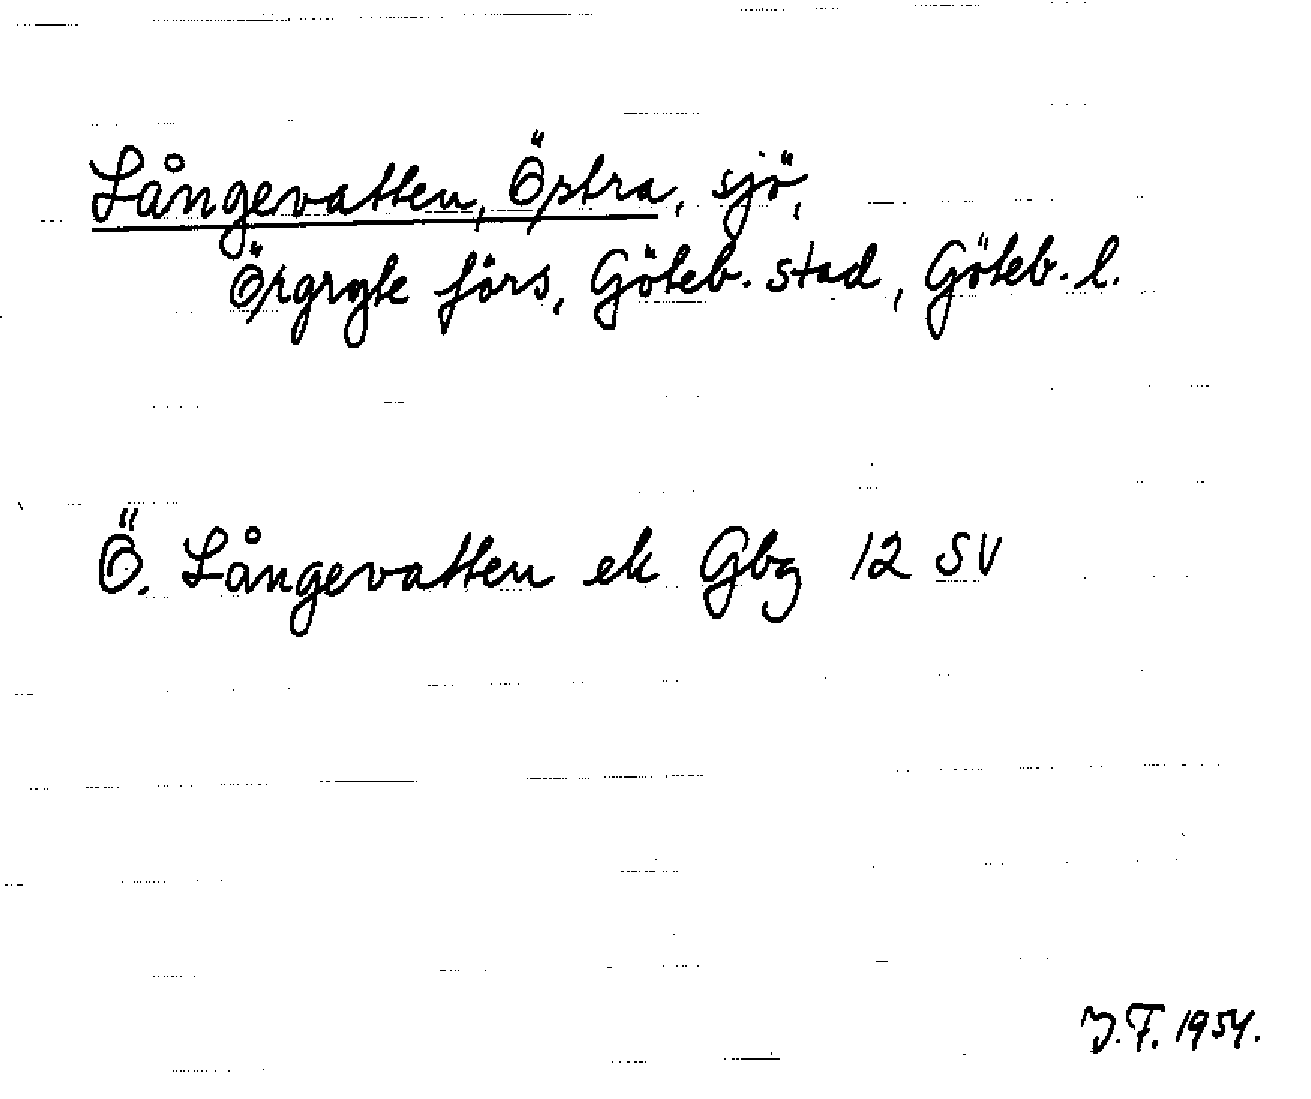 Långevatten, Östra, sjö,
Örgryte förs, Göteb. stad, Göteb. l.
Ö. Långevatten ek Gbg 12 SV
Y.F. 1954.